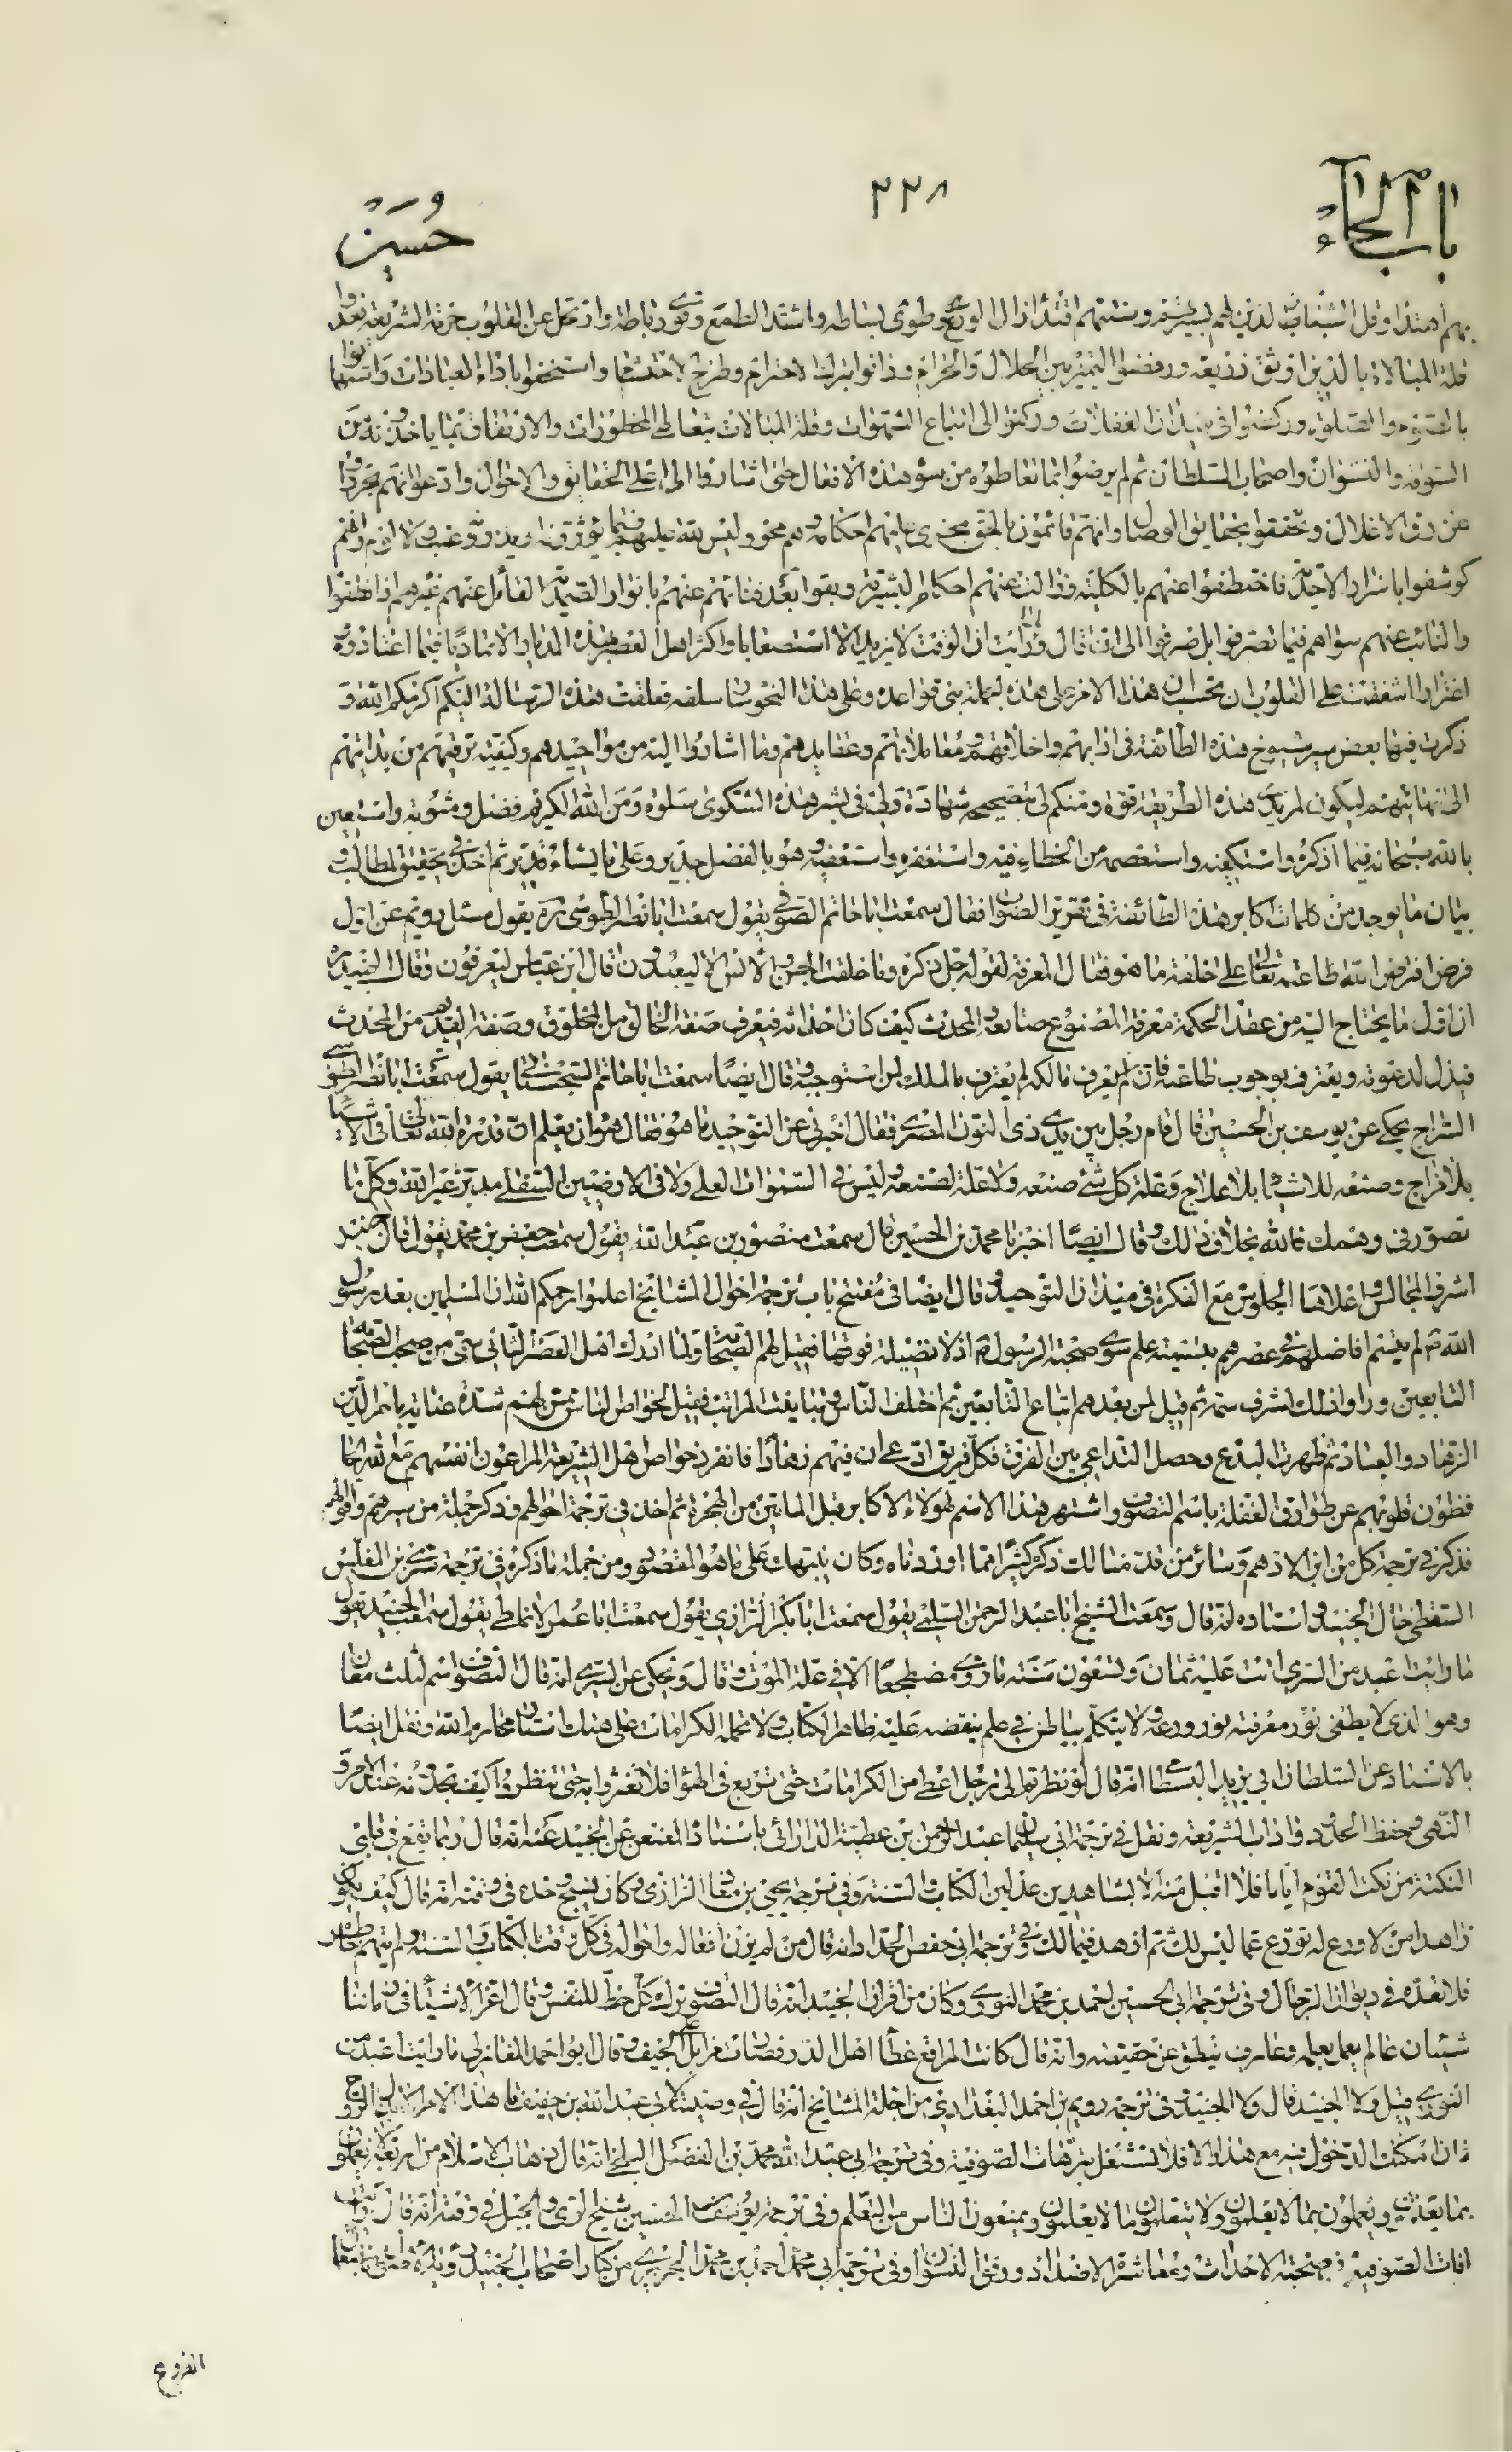 باب الحاء
٢٢٨
حسين
بهم اهتداء وقل الشباب الذين لهم بسيرتهم وسنتهم اقتداء زال الورع وطوى بساطه واشتد الطمع وقوى رباطه وارتحل عن القلوب حرمة الشريعة فعدوا
قلة المبالاة بالدين اوثق ذريعة ورفضوا التميز بين الحلال والحرام ودانوا بترك الاحترام وطرح الاحتشام واستخفوا باداء العبادات واستهانوا
بالصوم والصلوة وركضوا في ميدان الغفلات وركنوا الى اتباع الشهوات وقلة المبالات بتعاطى المحظورات والارتفاق بما ياخذونه من
السوقة والنسوان واصحاب السلطان ثم لم يرضوا بما تعاطوه من سوء هذه الافعال حتى اشاروا الى اعلى الحقايق والاحوال وادعوا انهم تحرروا
عن رق الاغلال وتحققوا بحقايق الوصال وانهم قائمون بالحق تجرى عليهم احكامه وهم محو وليس لله عليهم فيما يؤثرونه ويذرونه عتب ولا لوم وانهم
كوشفوا باسرار الاحدية فاختطفوا عنهم بالكلية وزالت عنهم احكام البشرية وبقوا بعد فنائهم عنهم بانوار الصمدية القائل عنهم غيرهم اذا نطقوا
والنائب عنهم سواهم فيما تصرفوا بل صرفوا الى ان قال ولما رايت ان الوقت لا يزيد الا استصعابا واكثر اهل العصر بهذه الديار الا تماديا فيما اعتادوه
اغترارا اشفقت على القلوب ان تحسب ان هذا الامر على هذه الجملة بنى قواعده وعلى هذا النحو سار سلفه فعلقت هذه الرسالة اليكم اكرمكم الله و
ذكرت فيها بعض سير شيوخ هذه الطائفة في ادابهم واخلاقهم ومعاملاتهم وعقايدهم وما اشاروا اليه من مواجيدهم وكيفية ترقيهم من بدايتهم
الى نهايتهم ليكون لمريدى هذه الطريقة قوة ومنكم لى بتصحيحه شهادة ولى في نشر هذه الشكوى سلوة ومن الله الكريم فضل ومثوبة واستعين
بالله سبحانه فيما اذكره واستكفيه واستعصمه من الخطاء فيه واستغفره واستعفيه وهو بالفضل جدير وعلى ما يشاء قدير ثم اخذ في تحقيق المطالب و
بيان ما يوجد من كلمات اكابر هذه الطائفة في تقرير الصواب فقال سمعت ابا حاتم الصوفي يقول سمعت ابا نصر الطوسي ره يقول سئل رويم عن اول
فرض افترض الله طاعته تعالى على خلقه ما هو فقال المعرفة لقوله جل ذكره وما خلقت الجن والانس الا ليعبدون قال ابن عباس ليعرفون وقال الجنيد
ان اول ما يحتاج اليه من عقد الحكمة معرفة المصنوع صانعه والمحدث كيف كان احداثه فيعرف صفة الخالق من المخلوق وصفة القديم من المحدث
فيذل لدعوته ويعترف بوجوب طاعته فان لم يعرف مالكه لم يعترف بالملك لمن استوجبه وقال ايضا سمعت ابا حاتم السجستاني يقول سمعت ابا نصر الطوسي
السراج يحكي عن يوسف بن الحسين قال قام رجل بين يدى ذى النون المصرى فقال اخبرني عن التوحيد ما هو فقال هو ان يعلم ان قدرة الله تعالى في الاشياء
بلا مزاج وصنعه للاشياء بلا علاج وعلة كل شئ صنعه ولا علة لصنعه وليس في السموات العلى ولا في الارضين السفلى مدبر غير الله وكل ما
تصور في وهمك فالله بخلاف ذلك وقال ايضا اخبرنا محمد بن الحسين قال سمعت منصور بن عبد الله يقول سمعت جعفر بن محمد يقول قال جنيد
اشرف المجالس واعلاها الجلوس مع الفكرة في ميدان التوحيد وقال ايضا في مفتتح باب ترجمة احوال المشائخ اعلموا رحمكم الله ان المسلمين بعد رسول
الله ص لم يتسم افاضلهم في عصرهم بتسمية علم سوى صحبة الرسول ص اذ لا فضيلة فوقها فقيل لهم الصحابة ولما ادرك اهل العصر الثاني سمى من صحب الصحابة
التابعين وراوا ذلك اشرف سمة ثم قيل لمن بعدهم اتباع التابعين ثم اختلف الناس وتباينت المراتب فقيل لخواص الناس ممن لهم شدة عناية بامر الدين
الزهاد والعباد ثم ظهرت البدع وحصل التداعى بين الفرق فكل فريق ادعى ان فيهم زهادا فانفرد خواص اهل الشريعة المراعون انفسهم مع الله الحا
فظون قلوبهم عن طوارق الغفلة باسم التصوف واشتهر هذا الاسم لهؤلاء الاكابر قبل الماتين من الهجرة ثم اخذ في ترجمة احوالهم وذكر جملة من سيرهم واقوالهم
فذكر في ترجمة كل من ابن الادهم وسائر من قد منالك ذكره كثيرا مما اوردناه وكان يبتها على ما هو المقصود ومن جملة ما ذكره في ترجمة سرى بن المغلس
السقطى خال الجنيد واستاده انه قال وسمعت الشيخ ابا عبد الرحمن السلمى يقول سمعت ابا بكر الرازى يقول سمعت ابا عمر الانماطى يقول سمعت الجنيد يقول
ما رايت اعبد من السرى اتت عليه ثمان وتسعون سنة ما روى مضطجعا الا في علة الموت وقال ويحكى عن السرى انه قال التصوف اسم لثلث معان
وهو الذى لا يطفى نور معرفته نور ورعه ولا يتكلم بباطن في علم ينقضه عليه ظاهر الكتاب ولا تحمله الكرامات على هتك استار محارم الله ونقل ايضا
بالاسناد عن السلطان ابى يزيد البسطامى انه قال لو نظرتم الى رجل اعطى من الكرامات حتى تربع في الهواء فلا تغتروا به حتى تنظروا كيف تجدونه عند الامر و
النهى وحفظ الحدود واداب الشريعة ونقل في ترجمة ابى سليمان عبد الرحمن بن عطية الدارانى باسناده المعنعن عن الجنيد عنه انه قال ربما يقع في قلبى
النكتة من نكت القوم اياما فلا اقبل منه الا بشاهدين عدلين الكتاب والسنة وفي ترجمة يحيى بن معاذ الرازى وكان نسيج وحده في وقته انه قال كيف يكون
زاهدا من لا ورع له تورع عما ليس لك ثم ازهد فيما لك وفي ترجمة ابى حفص الحداد انه قال من لم يزن افعاله واحواله في كل وقت بالكتاب والسنة ولم يتهم خواطره
فلا تعده في ديوان الرجال وفي ترجمة ابى الحسين احمد بن محمد النورى وكان من اقران الجنيد انه قال التصوف ترك كل حظ للنفس وقال اعز الاشياء في زماننا
شيئان عالم يعمل بعلمه وعارف ينطق عن حقيقته وانه قال كانت المراقع غطاء اهل الدر فصارت مزابل على الجيف وقال ابو احمد المغازلى ما رايت اعبد من
النورى قيل ولا الجنيد قال ولا الجنيد وفي ترجمة رويم بن احمد البغدادى من اجلة المشائخ انه قال في وصيته لابى عبد الله بن خفيف ما هذا الامر الا ببذل الروح
فان امكنك الدخول فيه مع هذا والا فلا تشتغل بترهات الصوفية وفي ترجمة ابى عبد الله محمد بن الفضل البلخى انه قال ذهاب الاسلام من اربعة لا يعملون
بما يعلمون ويعملون بما لا يعلمون ولا يتعلمون ما لا يعلمون ويمنعون الناس من التعلم وفي ترجمة يوسف بن الحسين شيخ الرى والجبل في وقته انه قال رايت
افات الصوفية في صحبة الاحداث ومعاشرة الاضداد ورفق النسوان وفي ترجمة ابى محمد احمد بن محمد الجريرى من كبار اصحاب الجنيد
الفروع